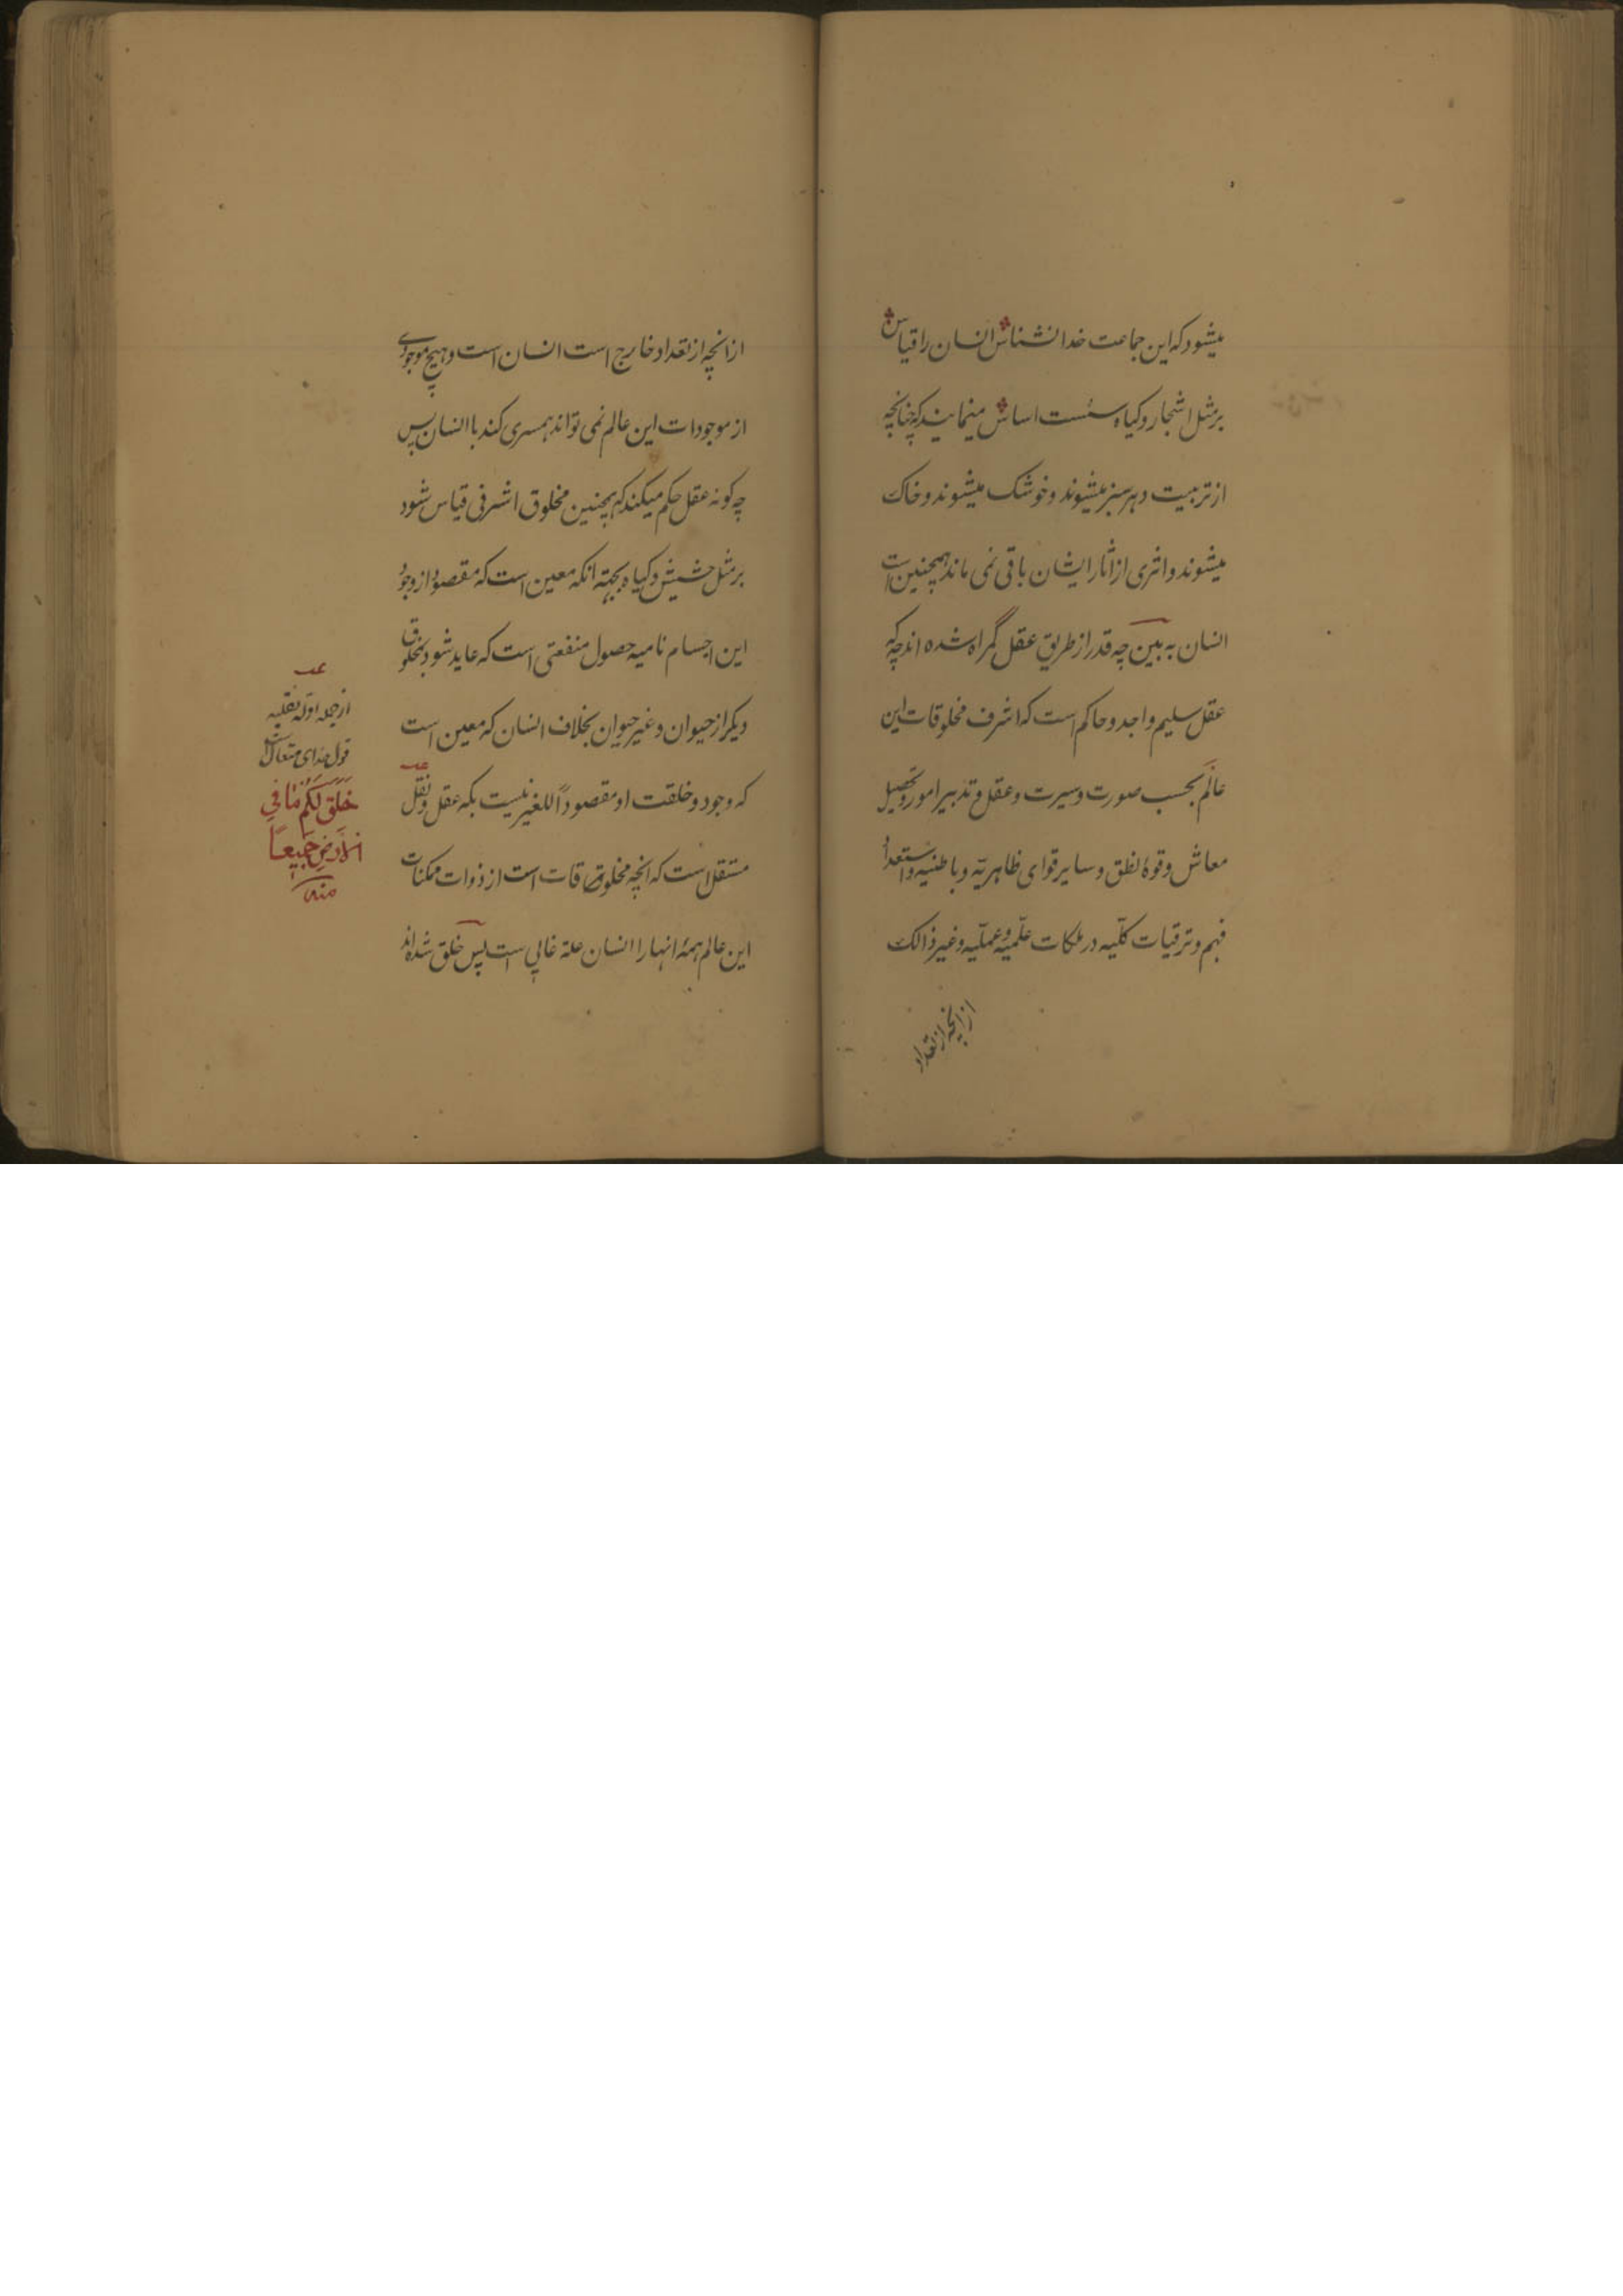 میشود که این جماعت خدا نشناس انسان را قیاس
بر مثل اشجار و کیاه سست اساس مینمایند که چنانچه
از تربیت دهر سبز میشوند و خوشک میشوند و خاک
میشوند و اثری از اثار ایشان باقی نمی ماند همچنین است
انسان به بین چه قدر از طریق عقل گمراه شده اند چه که
عقل سلیم واجد و حاکم است که اشرف مخلوقات این
عالم بحسب صورت و سیرت و عقل و تدبیر امور و تحصیل
معاش و قوهٔ نطق و سایر قوای ظاهریّه و باطنیه و استعداد
فهم و ترقیات کلّیه در ملکات علمیّه و عملّیه و غیر ذالک
از انچه از تعداد
از انچه از تعداد خارج است انسان است و هیچ موجودی
از موجودات این عالم نمی تواند همسری کند با انسان پس
چه کونه عقل حکم میکند که همچنین مخلوق اشرفی قیاس شود
بر مثل حشیش و کیاه بجهة انکه معین است که مقصود از وجود
این اجسام نامیه حصول منفعتی است که عاید شود بمخلوق
دیکر از حیوان و غیر حیوان بخلاف انسان که معین است
که وجود و خلقت او مقصوداً للغیر نیست بلکه عقل و نقل
مستقل است که انچه مخلوقات است از ذوات ممکنات
این عالم همهٔ انها را انسان علة غائی است پس خلق شده اند
از جمله ادلّه نقلیه
قول خدای متعال است
خَلَقَ لَکُم مٰا فِی
الْاَرْضِ جَمیعاً
منه